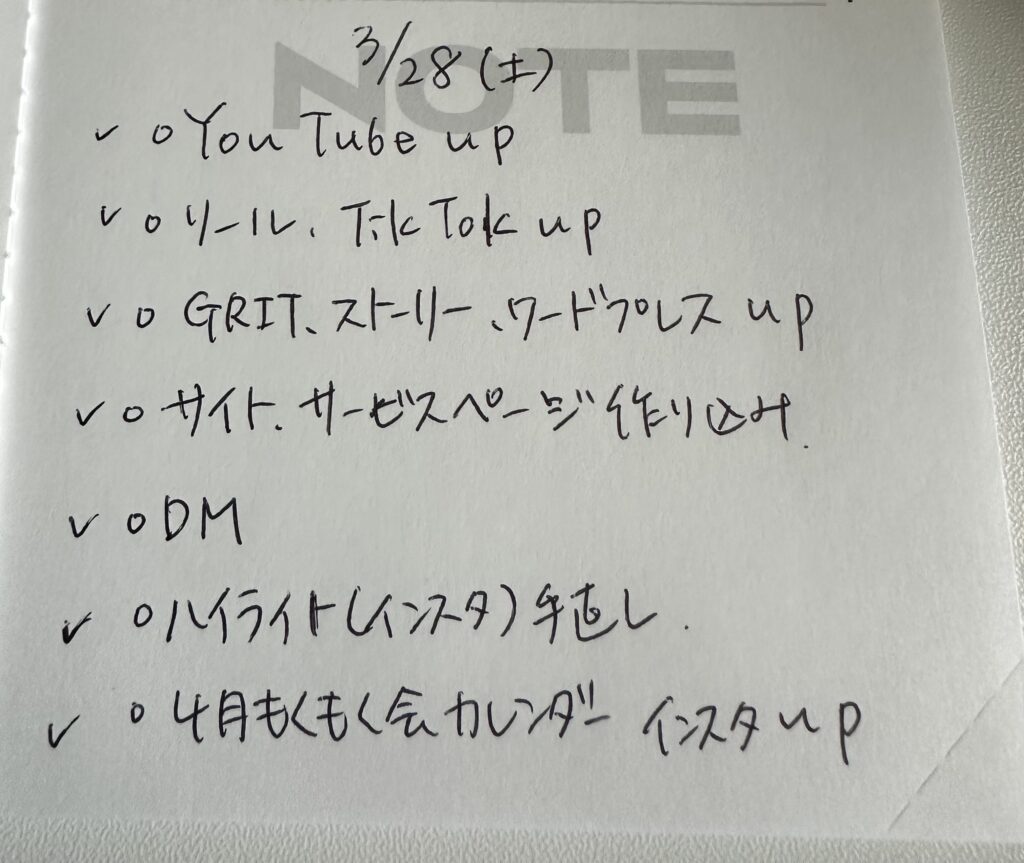 NOTE
3/28(土)
✓ ○ YouTube up
✓ ○ リール、TikTok up
✓ ○ GRIT、ストーリー、ワードプレス up
✓ ○ サイト、サービスページ作り込み.
✓ ○ DM
✓ ○ ハイライト(インスタ)手直し.
✓ ○ 4月もくもく会カレンダー インスタup